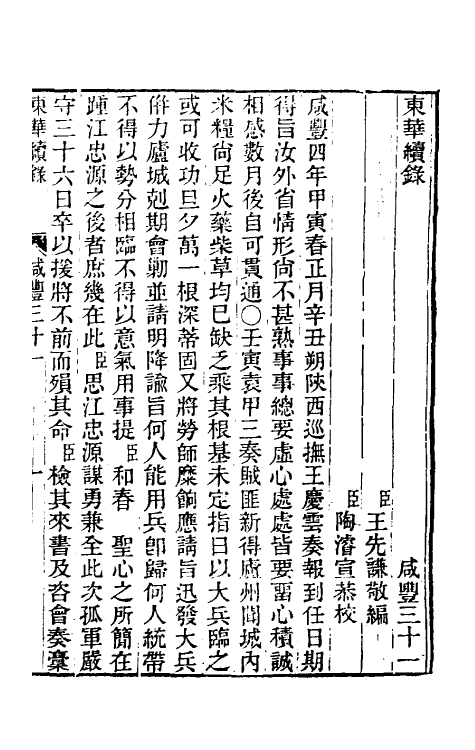 東華續錄　咸豐三十一
臣王先謙敬編
臣陶濬宣恭校
咸豐四年甲寅春正月辛丑朔陜西巡撫王慶雲奏報到任日期
得旨汝外省情形尙不甚熟事事總要虛心處處皆要畱心積誠
相感數月後自可貫通〇壬寅袁甲三奏賊匪新得廬州閤城內
米糧尙足火藥柴草均已缺乏乘其根基未定指日以大兵臨之
或可收功旦夕萬一根深蒂固又將勞師糜餉應請旨迅發大兵
倂力廬城剋期會勦並請明降諭旨何人能用兵卽歸何人統帶
不得以勢分相臨不得以意氣用事提臣和春　聖心之所簡在
踵江忠源之後者庶幾在此臣思江忠源謀勇兼全此次孤軍嚴
守三十六日卒以援將不前而殞其命臣檢其來書及咨會奏稾
東華續錄　咸豐三十一　一